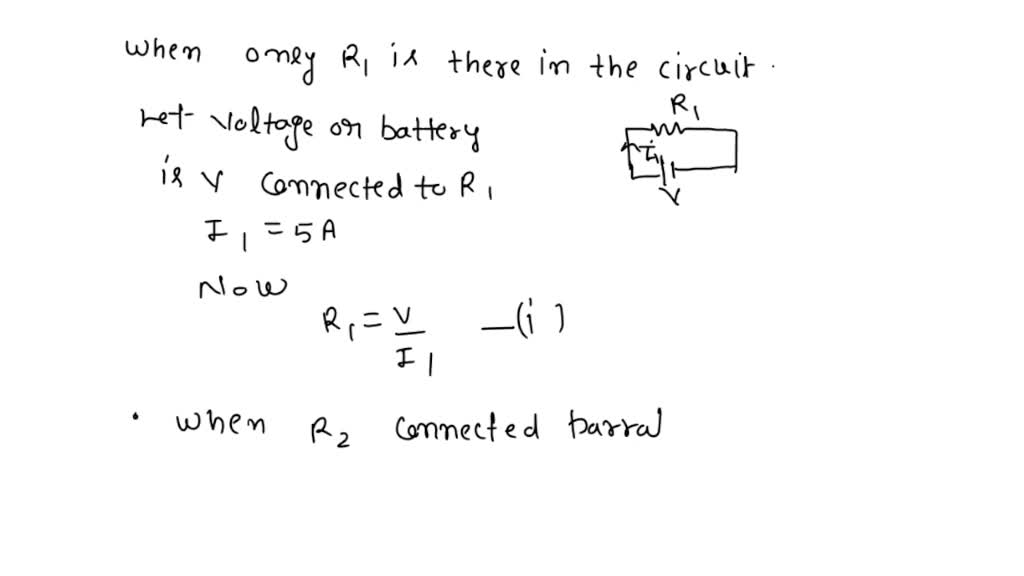 when only R1 is there in the circuit.
R1
Let voltage or battery
I1
is V connected to R1
V
I1 = 5A
Now
R1 = V/I1 —(i)
• when R2 connected parral